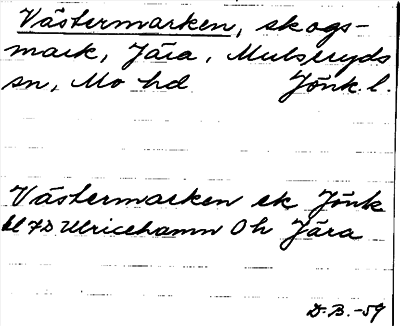 Västermarken, skogs-
mark, Jära, Mulseryds
sn, Mo hd Jönk. l.
Västermarken ek Jönk
bl 7D Ulricehamn Oh Jära
D. B. -59